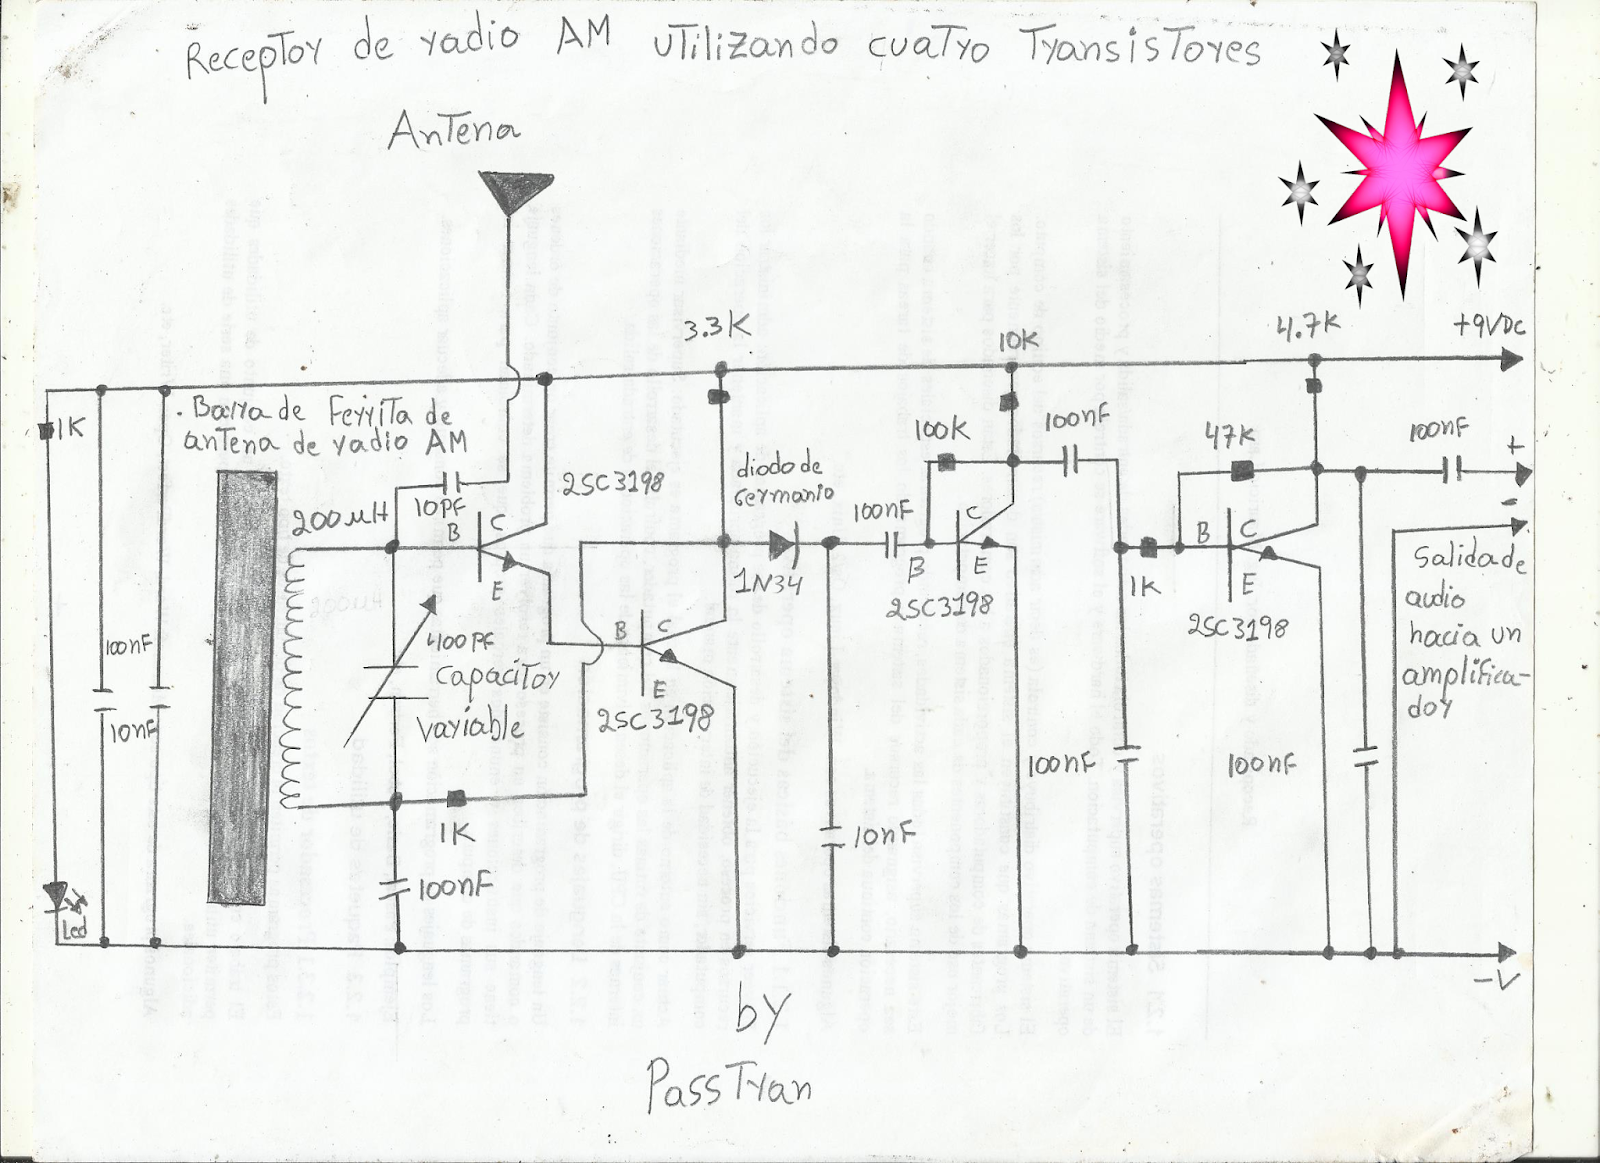 Receptor de radio AM utilizando cuatro Transistores
Antena
3.3K
10K
4.7K
+9VDC
1K
Barra de Ferrita de
antena de radio AM
10PF
200µH
B
C
E
2SC3198
100nF
10nF
400PF
capacitor
variable
1K
100nF
Led
B
C
E
2SC3198
diodo de
Germanio
1N34
10nF
100nF
100K
B
C
E
2SC3198
100nF
1K
100nF
47K
B
C
E
2SC3198
100nF
100nF
+
-
Salida de
audio
hacia un
amplifica-
dor
-V
by
PassTran